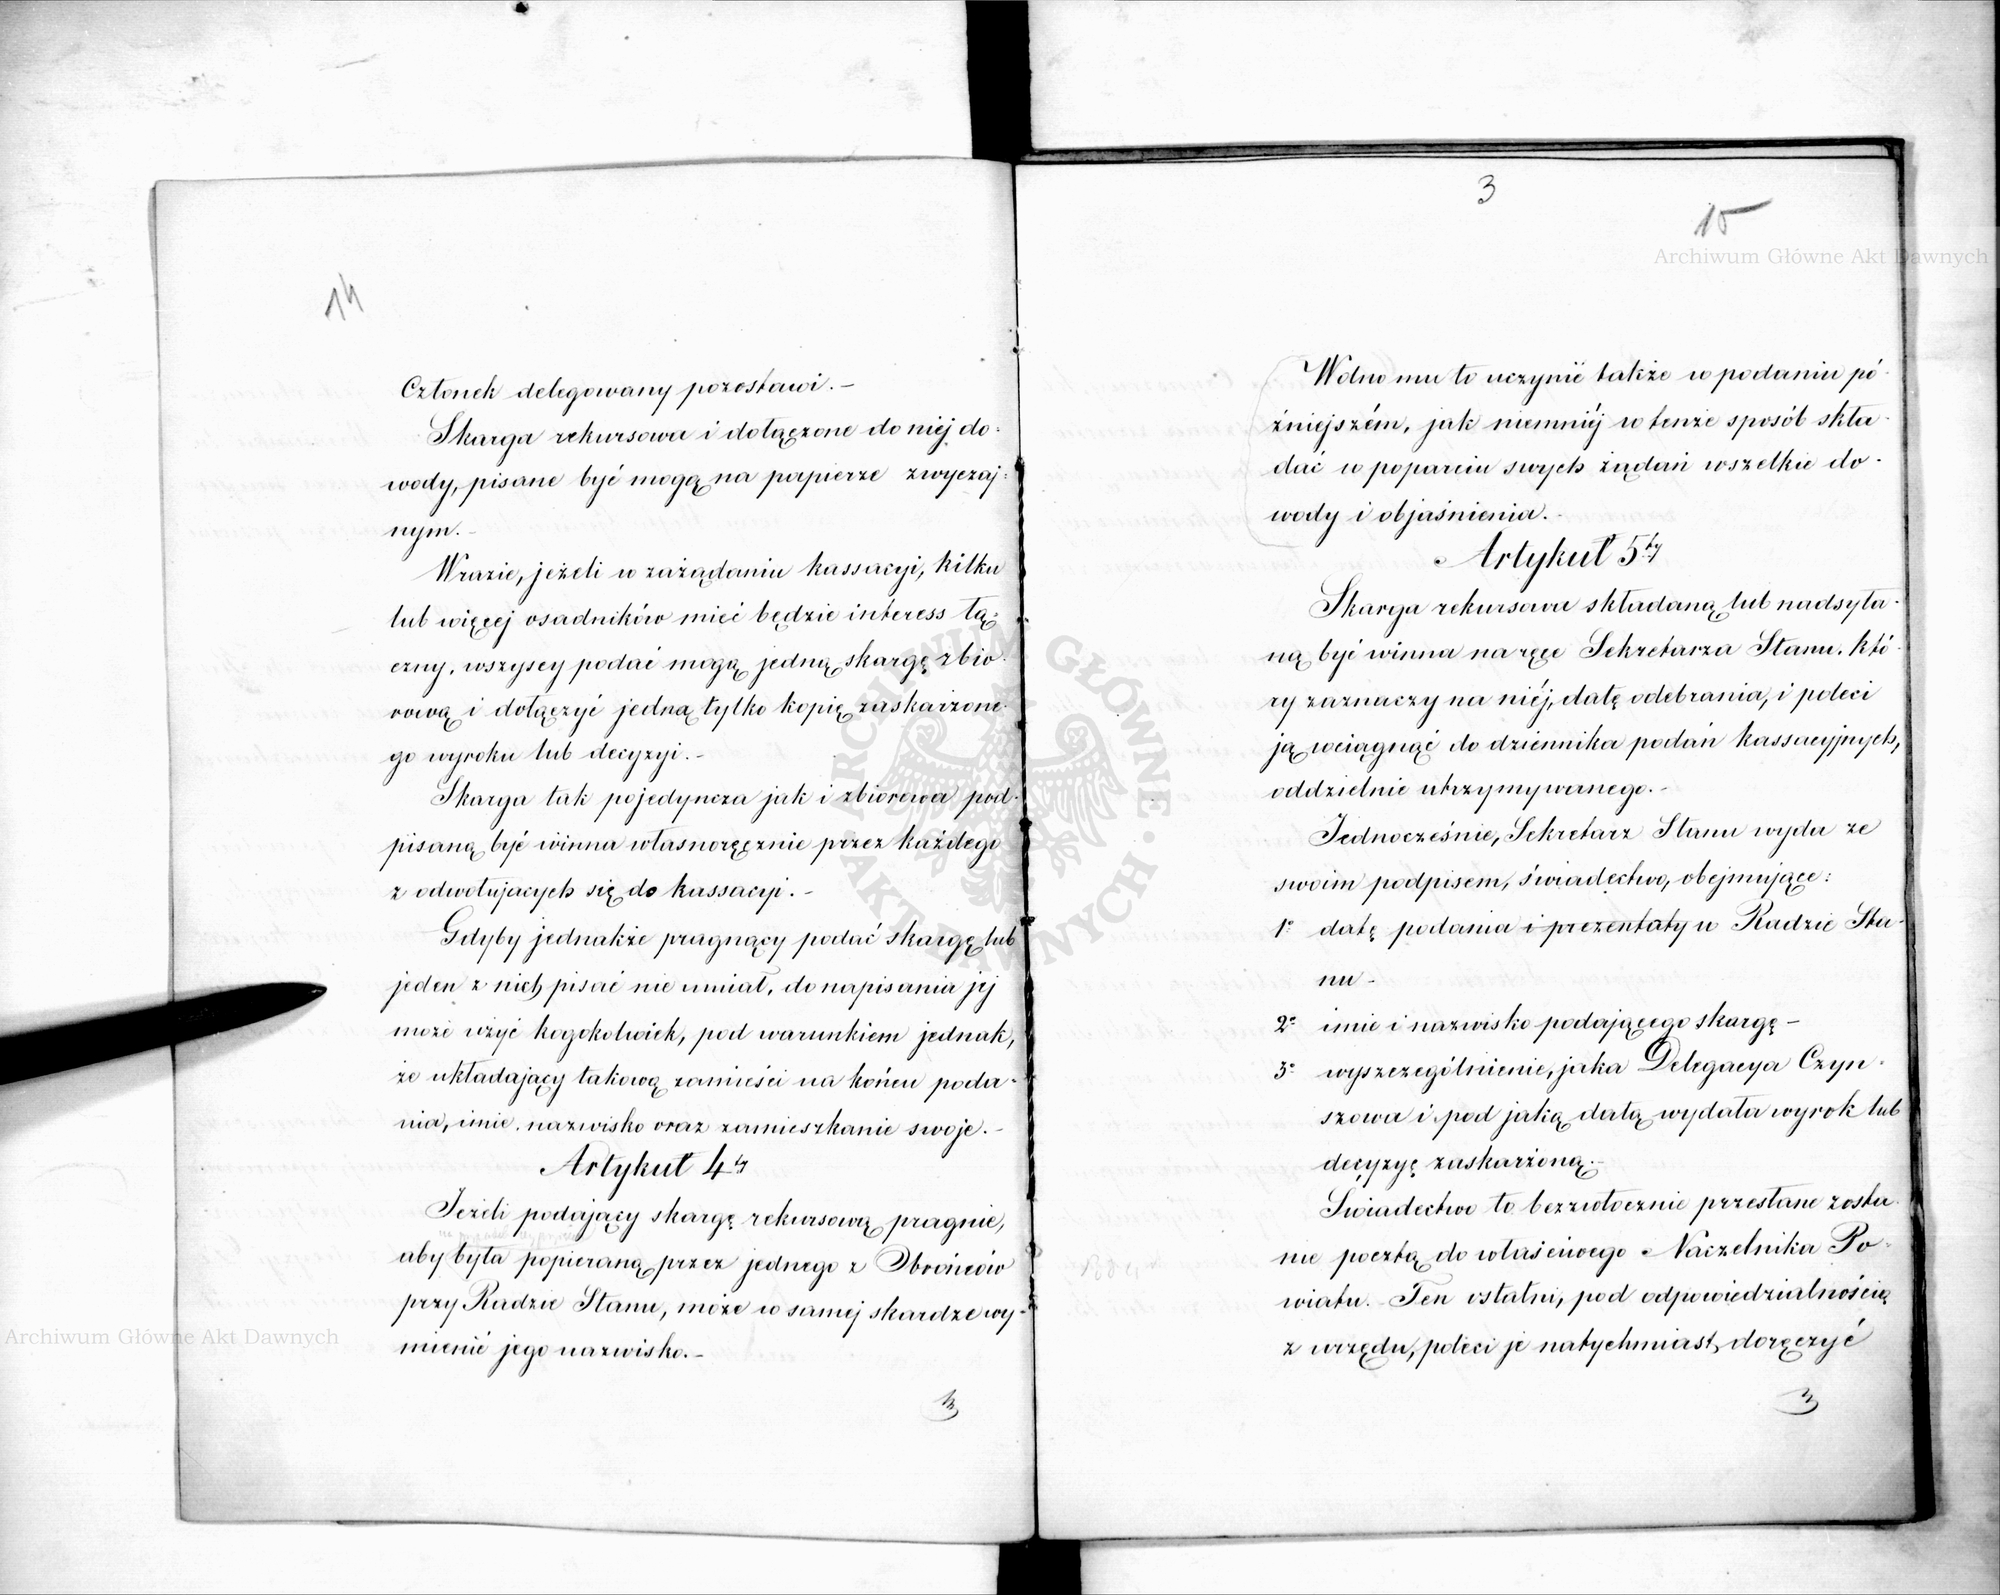 14
Członek delegowany pozostawi.-
Skarga rekursowa i dołączone do niej do-
wody, pisane być mogą na papierze zwyczaj-
nym.-
Wrazie, jeżeli w zażądaniu kassacyi, kilku
lub więcej osadników mieć będzie interess łą-
czny, wszyscy podać mogą jedną skargę zbio-
rową i dołączyć jedną tylko kopię zaskarzone-
go wyroku lub decyzyi.-
Skarga tak pojedyncza jak i zbiorowa pod-
pisaną być winna własnoręcznie przez każdego
z odwołujących się do kassacyi.-
Gdyby jednakże pragnący podać skargę lub
jeden z nich pisać nie umiał, do napisania jej
może użyć kogokolwiek, pod warunkiem jednak,
że układający takową zamieści na końcu poda-
nia, imie, nazwisko oraz zamieszkanie swoje.-
Artykuł 4ty
Jeżeli podający skargę rekursową pragnie,
aby była popieraną przez jednego z Obrońców
przy Radzie Stanu, może w samej skardze wy-
mienić jego nazwisko.-
3
15
Wolno mu to uczynić także w podaniu pó-
źniejszém, jak niemniéj w tenże sposób skła-
dać w poparciu swych żądań wszelkie do-
wody i objaśnienia.-
Artykuł 5ty
Skarga rekursowa składaną lub nadsyła-
ną być winna na ręce Sekretarza Stanu, któ-
ry zaznaczy na niéj, datę odebrania, i poleci
ją wciągnąć do dziennika podań kassacyjnych,
oddzielnie utrzymywanego.-
Jednocześnie, Sekretarz Stanu wyda ze
swoim podpisem, świadectwo, obejmujące:
1o datę podania i prezentaty w Radzie Sta-
nu -
2o imie i nazwisko podającego skargę -
3o wyszczególnienie, jaka Delegacya Czyn-
szowa i pod jaką datą wydała wyrok lub
decyzyę zaskarżoną.-
Świadectwo to bezzwłocznie przesłane zosta-
nie pocztą do właściwego Naczelnika Po-
wiatu.- Ten ostatni, pod odpowiedzialnością
z urzędu, poleci je natychmiast, doręczyć
3
Archiwum Główne Akt Dawnych
Archiwum Główne Akt Dawnych
ARCHIWUM GŁÓWNE AKT DAWNYCH